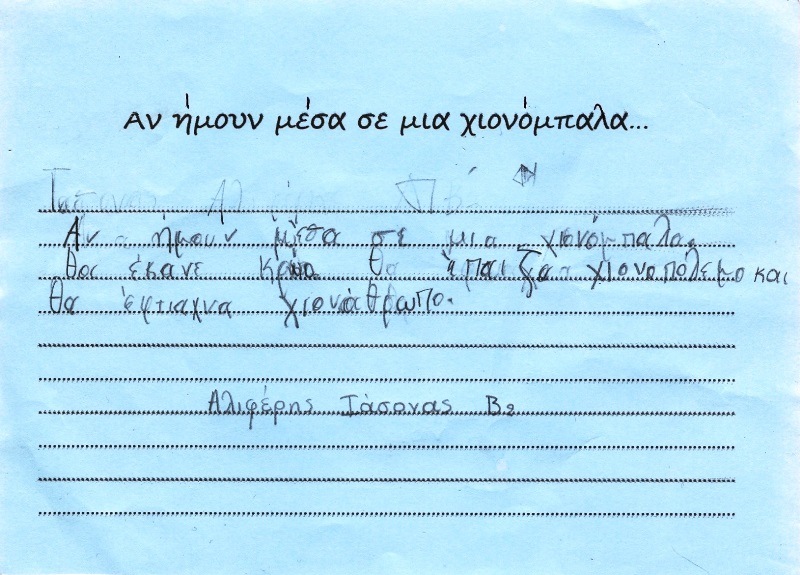 Αν ήμουν μέσα σε μια χιονόμπαλα...
Αν ήμουν μέσα σε μια χιονόμπαλα.
θα έκανε κρύο θα έπαιζα χιονοπόλεμο και
θα έφτιαχνα χιονάθρωπο.
Αλιφέρης Ιάσονας Β2